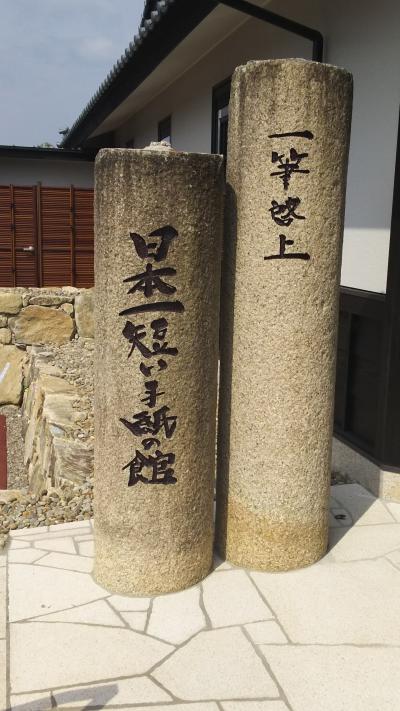 一筆啓上
日本一短い手紙の館